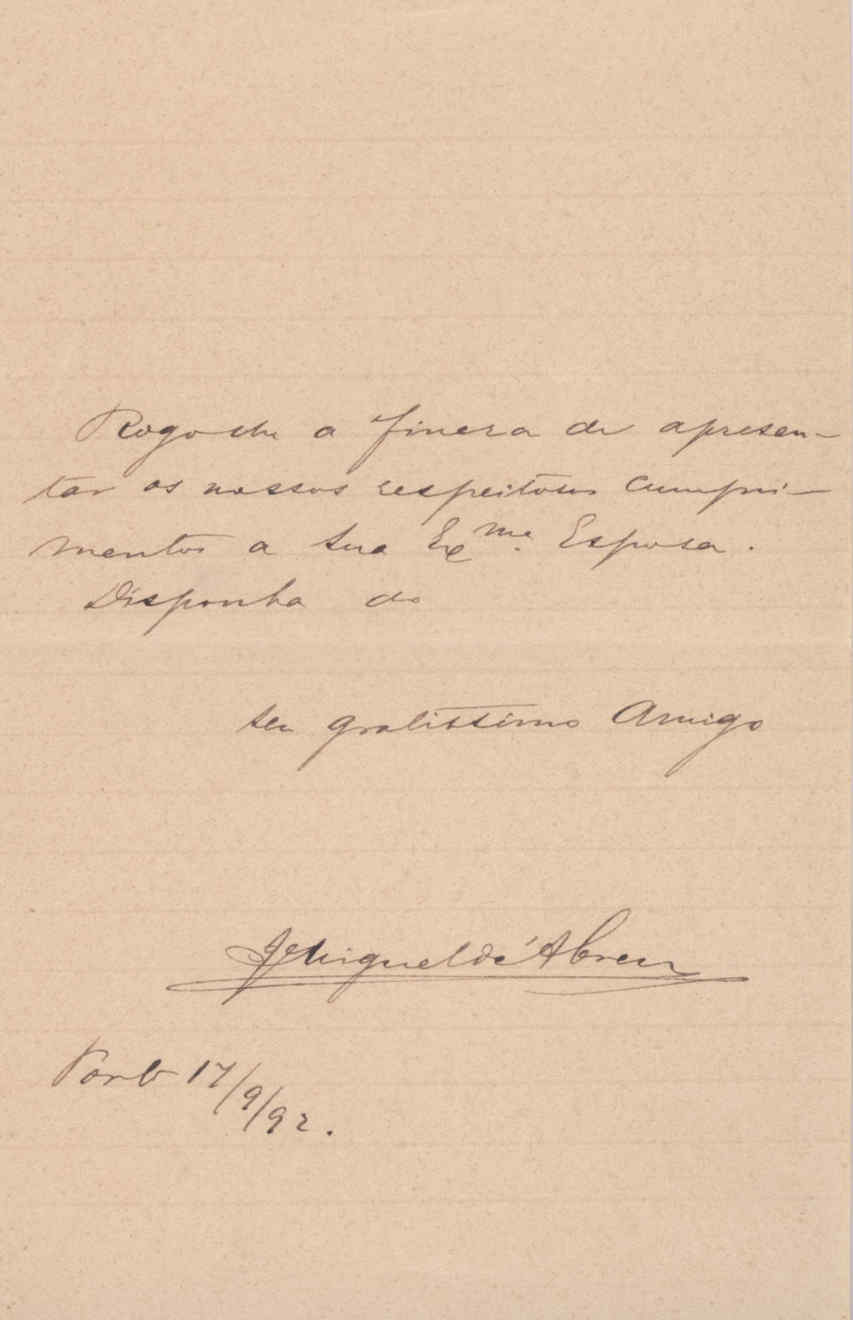 Rogo-lhe a fineza de apresen-
tar os nossos respeitosos cumpri-
mentos a sua Ex.ma Esposa.
Disponha do
seu gratissimo Amigo
Miguel d'Abreu
Porto 17/9/92.